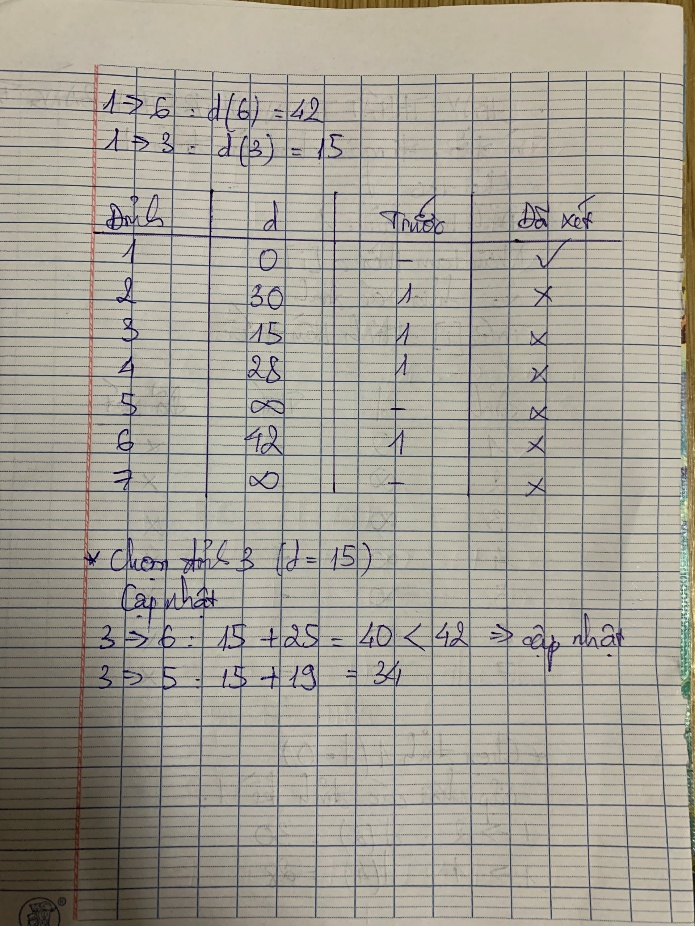 1 => 6 : d(6) = 42
1 => 3 : d(3) = 15
Đỉnh d Trước Đã xét
1 0 - ✓
2 30 1 x
3 15 1 x
4 28 1 x
5 ∞ - x
6 42 1 x
7 ∞ - x
* Chọn đỉnh 3 (d = 15)
Cập nhật
3 => 6 : 15 + 25 = 40 < 42 => cập nhật
3 => 5 : 15 + 19 = 34